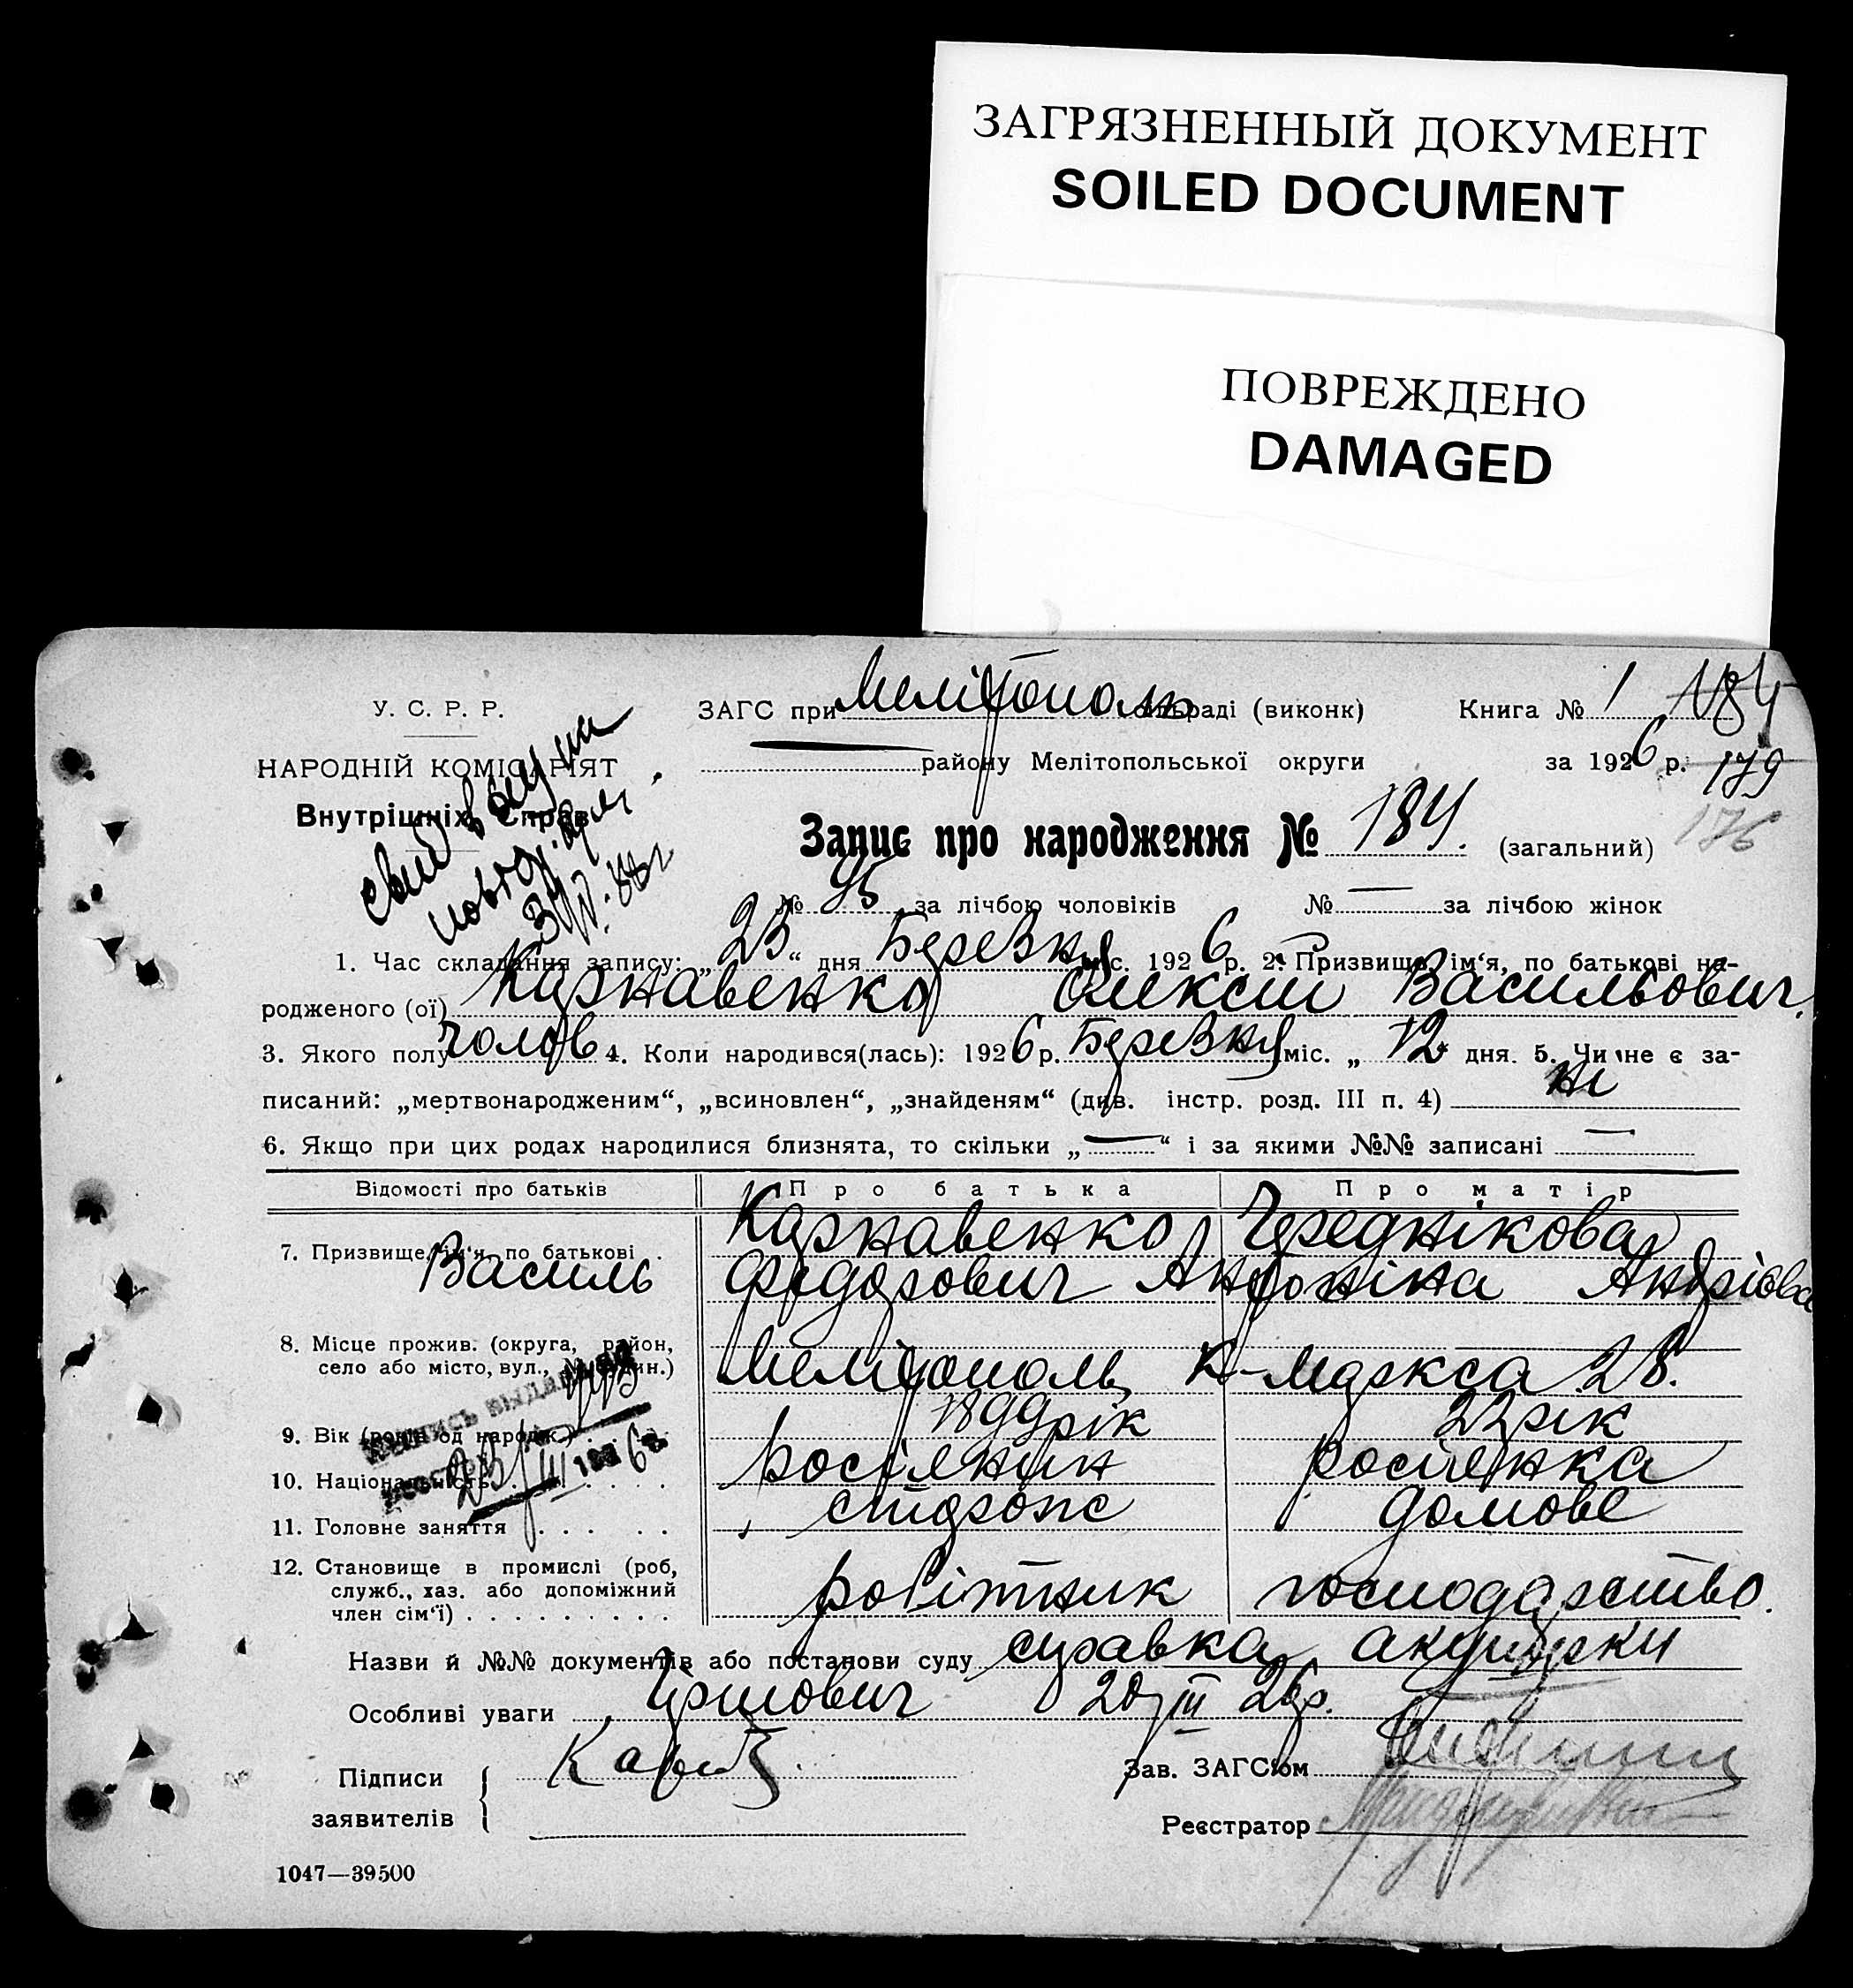 ЗАГРЯЗНЕННЫЙ ДОКУМЕНТ
SOILED DOCUMENT
ПОВРЕЖДЕНО
DAMAGED
У. С. Р. Р.
НАРОДНІЙ КОМІСАРІЯТ
Внутрішніх Справ
ЗАГС при Мелітополь раді (виконк) Книга № 1 184
району Мелітопольської округи за 1926 р. 179
Запис про народження № 184. (загальний) 176
№ 95 за лічбою чоловіків № — за лічбою жінок
1. Час складання запису: „23“ дня Березня міс. 1926 р. 2. Призвище, ім‘я, по батькові на-
родженого (ої) Карнавенко Олексій Васильович.
3. Якого полу чолов 4. Коли народився(лась): 1926 р. Березня міс. „12 дня. 5. Чи не є за-
писаний: „мертвонародженим“, „всиновлен“, „знайденям“ (див. інстр. розд. III п. 4) ні
6. Якщо при цих родах народилися близнята, то скільки „—“ і за якими №№ записані —
Відомості про батьків Про батька Про матір
7. Призвище, ім‘я, по батькові . Карнавенко Череднікова
Василь Федорович Антоніна Андріова
8. Місце прожив. (округа, район,
село або місто, вул., № будин.) Мелітополь К-Маркса 28.
9. Вік (років од народж.) 1899 рік 22 рік
10. Національність росіянин росіянка
11. Головне заняття домове
12. Становище в промислі (роб,
служб., хаз. або допоміжний
член сім‘ї) робітник господарство.
Назви й №№ документів або постанови суду справка акушерки
Особливі уваги 20/III 26 р.
Підписи
заявителів
Зав. ЗАГС‘ом
Реєстратор
23/III 1926
1047—39500